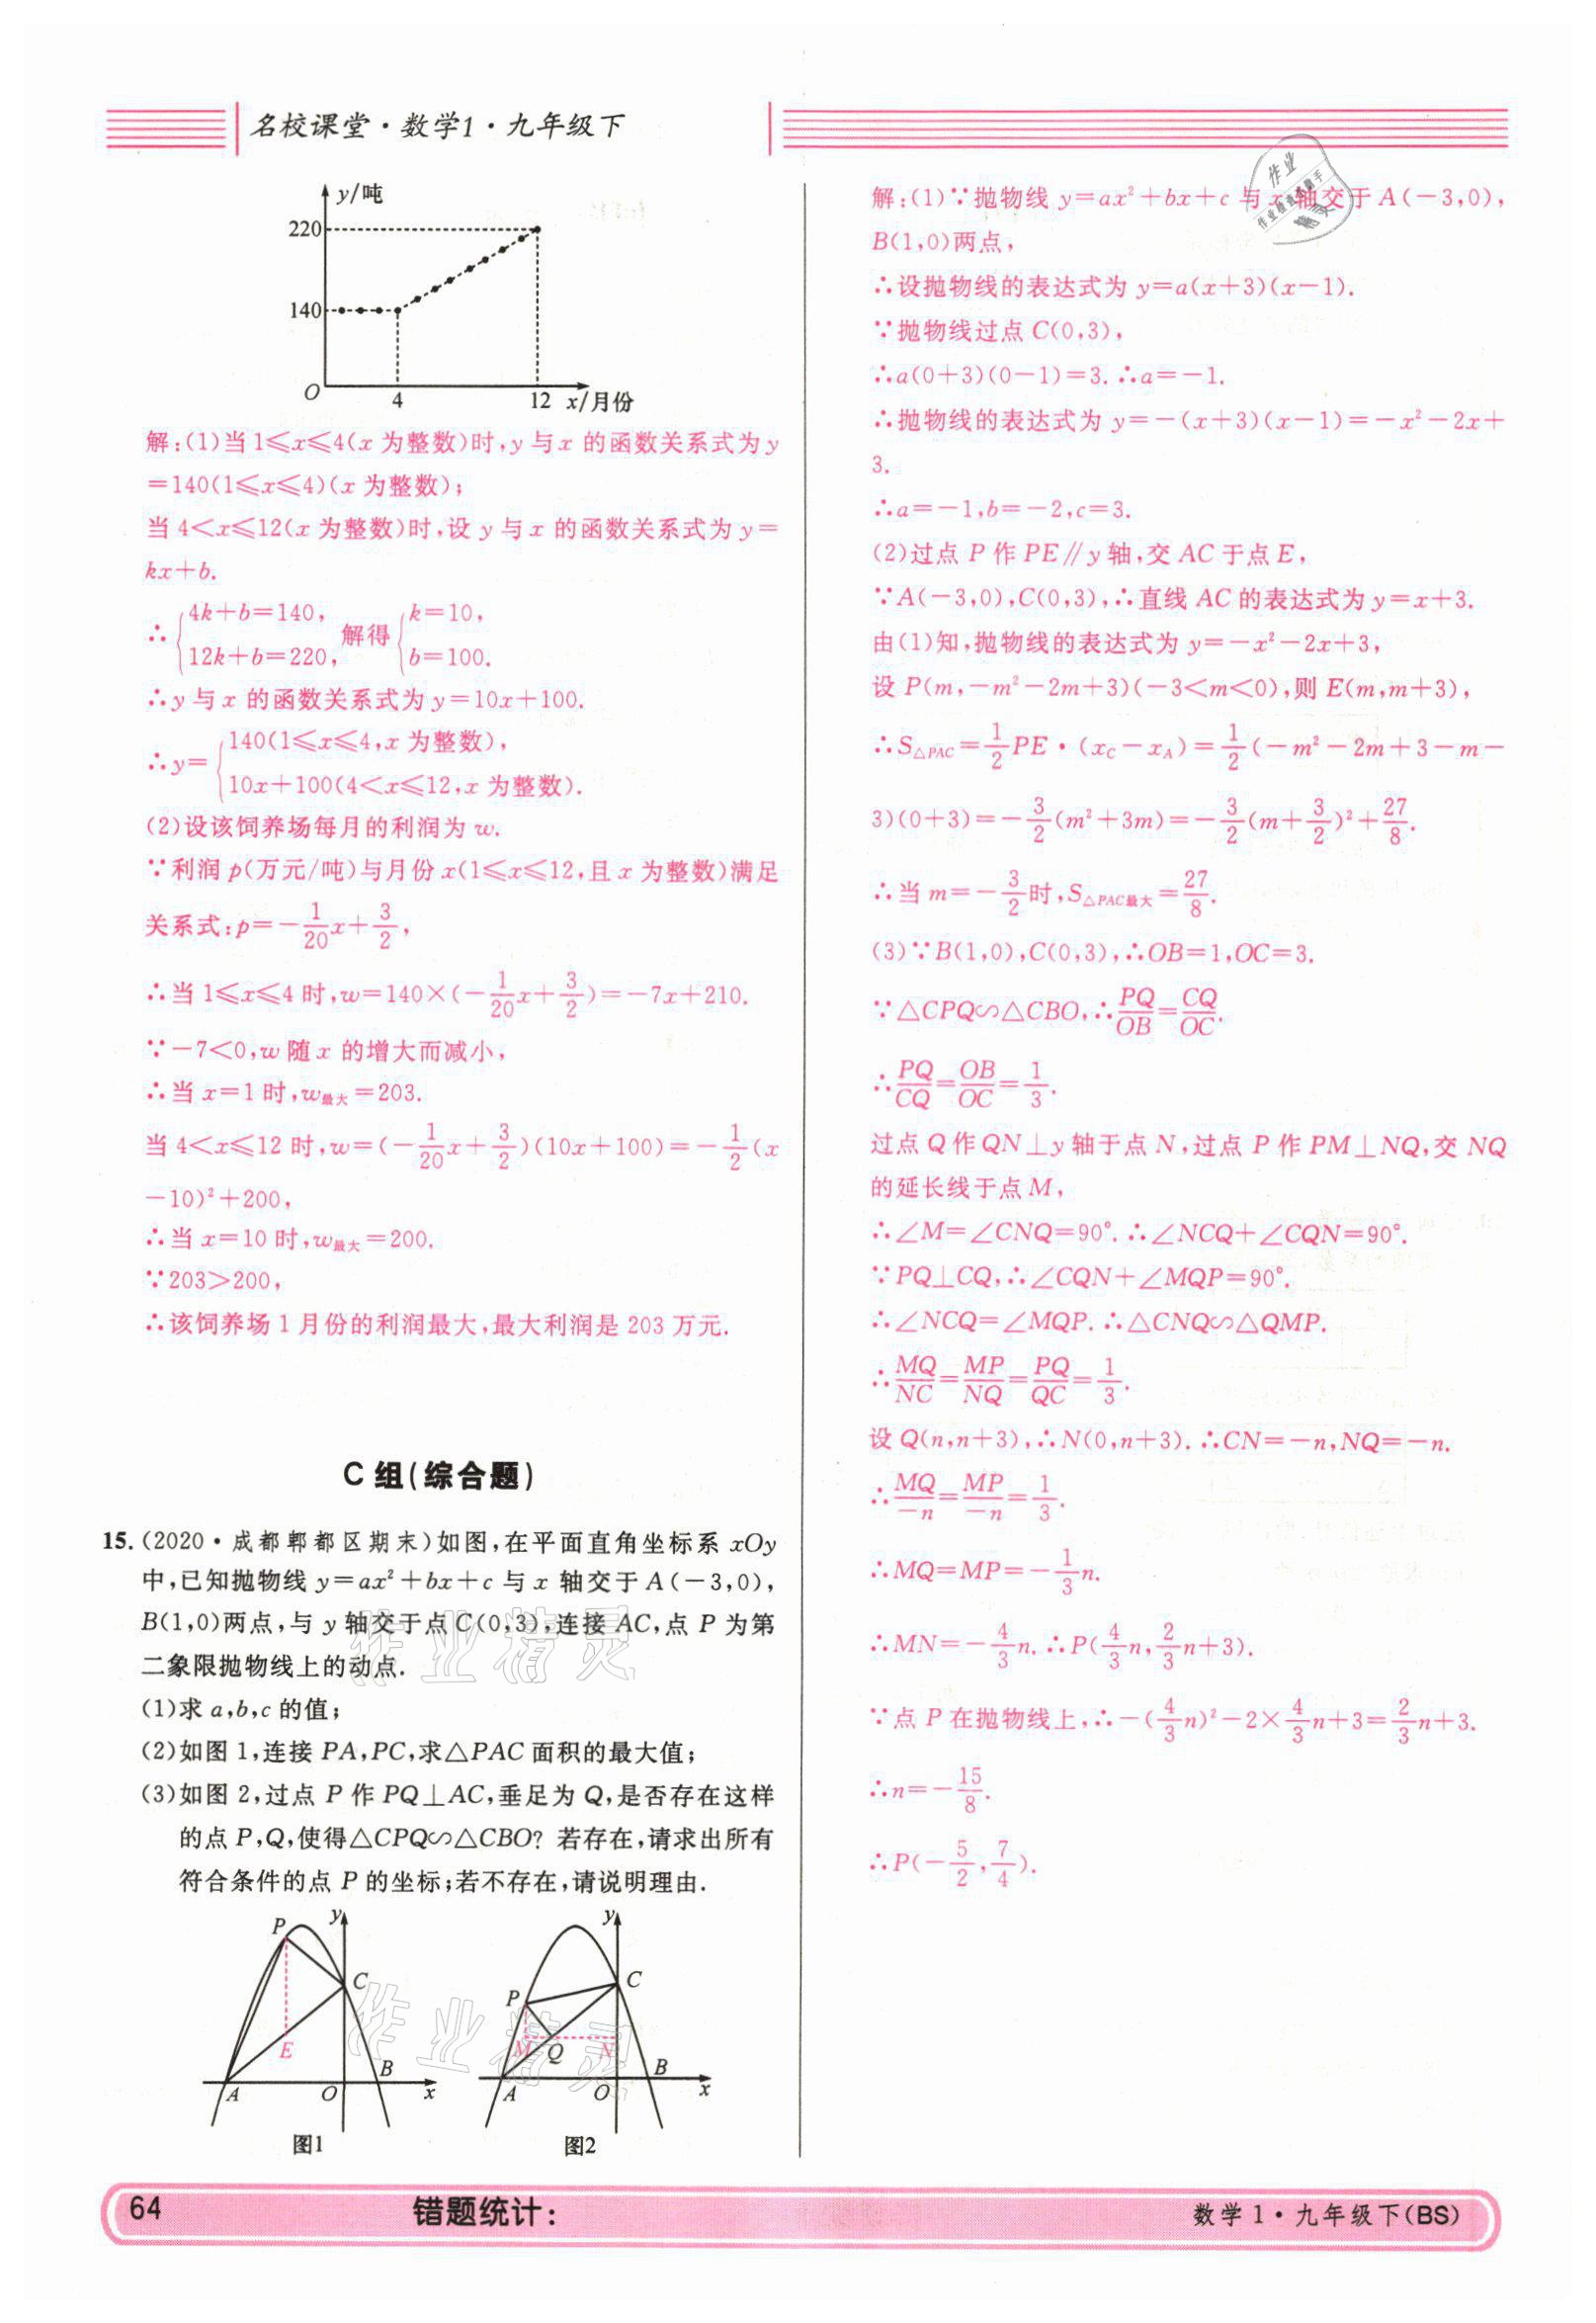 名校课堂·数学1·九年级下
y/吨
220
140
O
4
12
x/月份
解:(1)当1≤x≤4(x为整数)时,y与x的函数关系式为y
=140(1≤x≤4)(x为整数);
当4<x≤12(x为整数)时,设y与x的函数关系式为y=
kx+b.
∴{4k+b=140, 12k+b=220, 解得{k=10, b=100.
∴y与x的函数关系式为y=10x+100.
∴y={140(1≤x≤4,x为整数), 10x+100(4<x≤12,x为整数).
(2)设该饲养场每月的利润为w.
∵利润p(万元/吨)与月份x(1≤x≤12,且x为整数)满足
关系式:p=-1/20x+3/2,
∴当1≤x≤4时,w=140×(-1/20x+3/2)=-7x+210.
∵-7<0,w随x的增大而减小,
∴当x=1时,w最大=203.
当4<x≤12时,w=(-1/20x+3/2)(10x+100)=-1/2(x
-10)²+200,
∴当x=10时,w最大=200.
∵203>200,
∴该饲养场1月份的利润最大,最大利润是203万元.
C组(综合题)
15.(2020·成都郫都区期末)如图,在平面直角坐标系xOy
中,已知抛物线y=ax²+bx+c与x轴交于A(-3,0),
B(1,0)两点,与y轴交于点C(0,3),连接AC,点P为第
二象限抛物线上的动点.
(1)求a,b,c的值;
(2)如图1,连接PA,PC,求△PAC面积的最大值;
(3)如图2,过点P作PQ⊥AC,垂足为Q,是否存在这样
的点P,Q,使得△CPQ∽△CBO?若存在,请求出所有
符合条件的点P的坐标;若不存在,请说明理由.
P
y
C
E
A
O
B
x
图1
y
P
C
M
Q
N
A
O
B
x
图2
解:(1)∵抛物线y=ax²+bx+c与x轴交于A(-3,0),
B(1,0)两点,
∴设抛物线的表达式为y=a(x+3)(x-1).
∵抛物线过点C(0,3),
∴a(0+3)(0-1)=3.∴a=-1.
∴抛物线的表达式为y=-(x+3)(x-1)=-x²-2x+
3.
∴a=-1,b=-2,c=3.
(2)过点P作PE∥y轴,交AC于点E,
∵A(-3,0),C(0,3),∴直线AC的表达式为y=x+3.
由(1)知,抛物线的表达式为y=-x²-2x+3,
设P(m,-m²-2m+3)(-3<m<0),则E(m,m+3),
∴S△PAC=1/2PE·(xC-xA)=1/2(-m²-2m+3-m-
3)(0+3)=-3/2(m²+3m)=-3/2(m+3/2)²+27/8.
∴当m=-3/2时,S△PAC最大=27/8.
(3)∵B(1,0),C(0,3),∴OB=1,OC=3.
∵△CPQ∽△CBO,∴PQ/OB=CQ/OC.
∴PQ/CQ=OB/OC=1/3.
过点Q作QN⊥y轴于点N,过点P作PM⊥NQ,交NQ
的延长线于点M,
∴∠M=∠CNQ=90°.∴∠NCQ+∠CQN=90°.
∵PQ⊥CQ,∴∠CQN+∠MQP=90°.
∴∠NCQ=∠MQP.∴△CNQ∽△QMP.
∴MQ/NC=MP/NQ=PQ/QC=1/3.
设Q(n,n+3),∴N(0,n+3).∴CN=-n,NQ=-n.
∴MQ/-n=MP/-n=1/3.
∴MQ=MP=-1/3n.
∴MN=-4/3n.∴P(4/3n,2/3n+3).
∵点P在抛物线上,∴-(4/3n)²-2×4/3n+3=2/3n+3.
∴n=-15/8.
∴P(-5/2,7/4).
作业精灵
作业精灵
64
错题统计:
数学1·九年级下(BS)